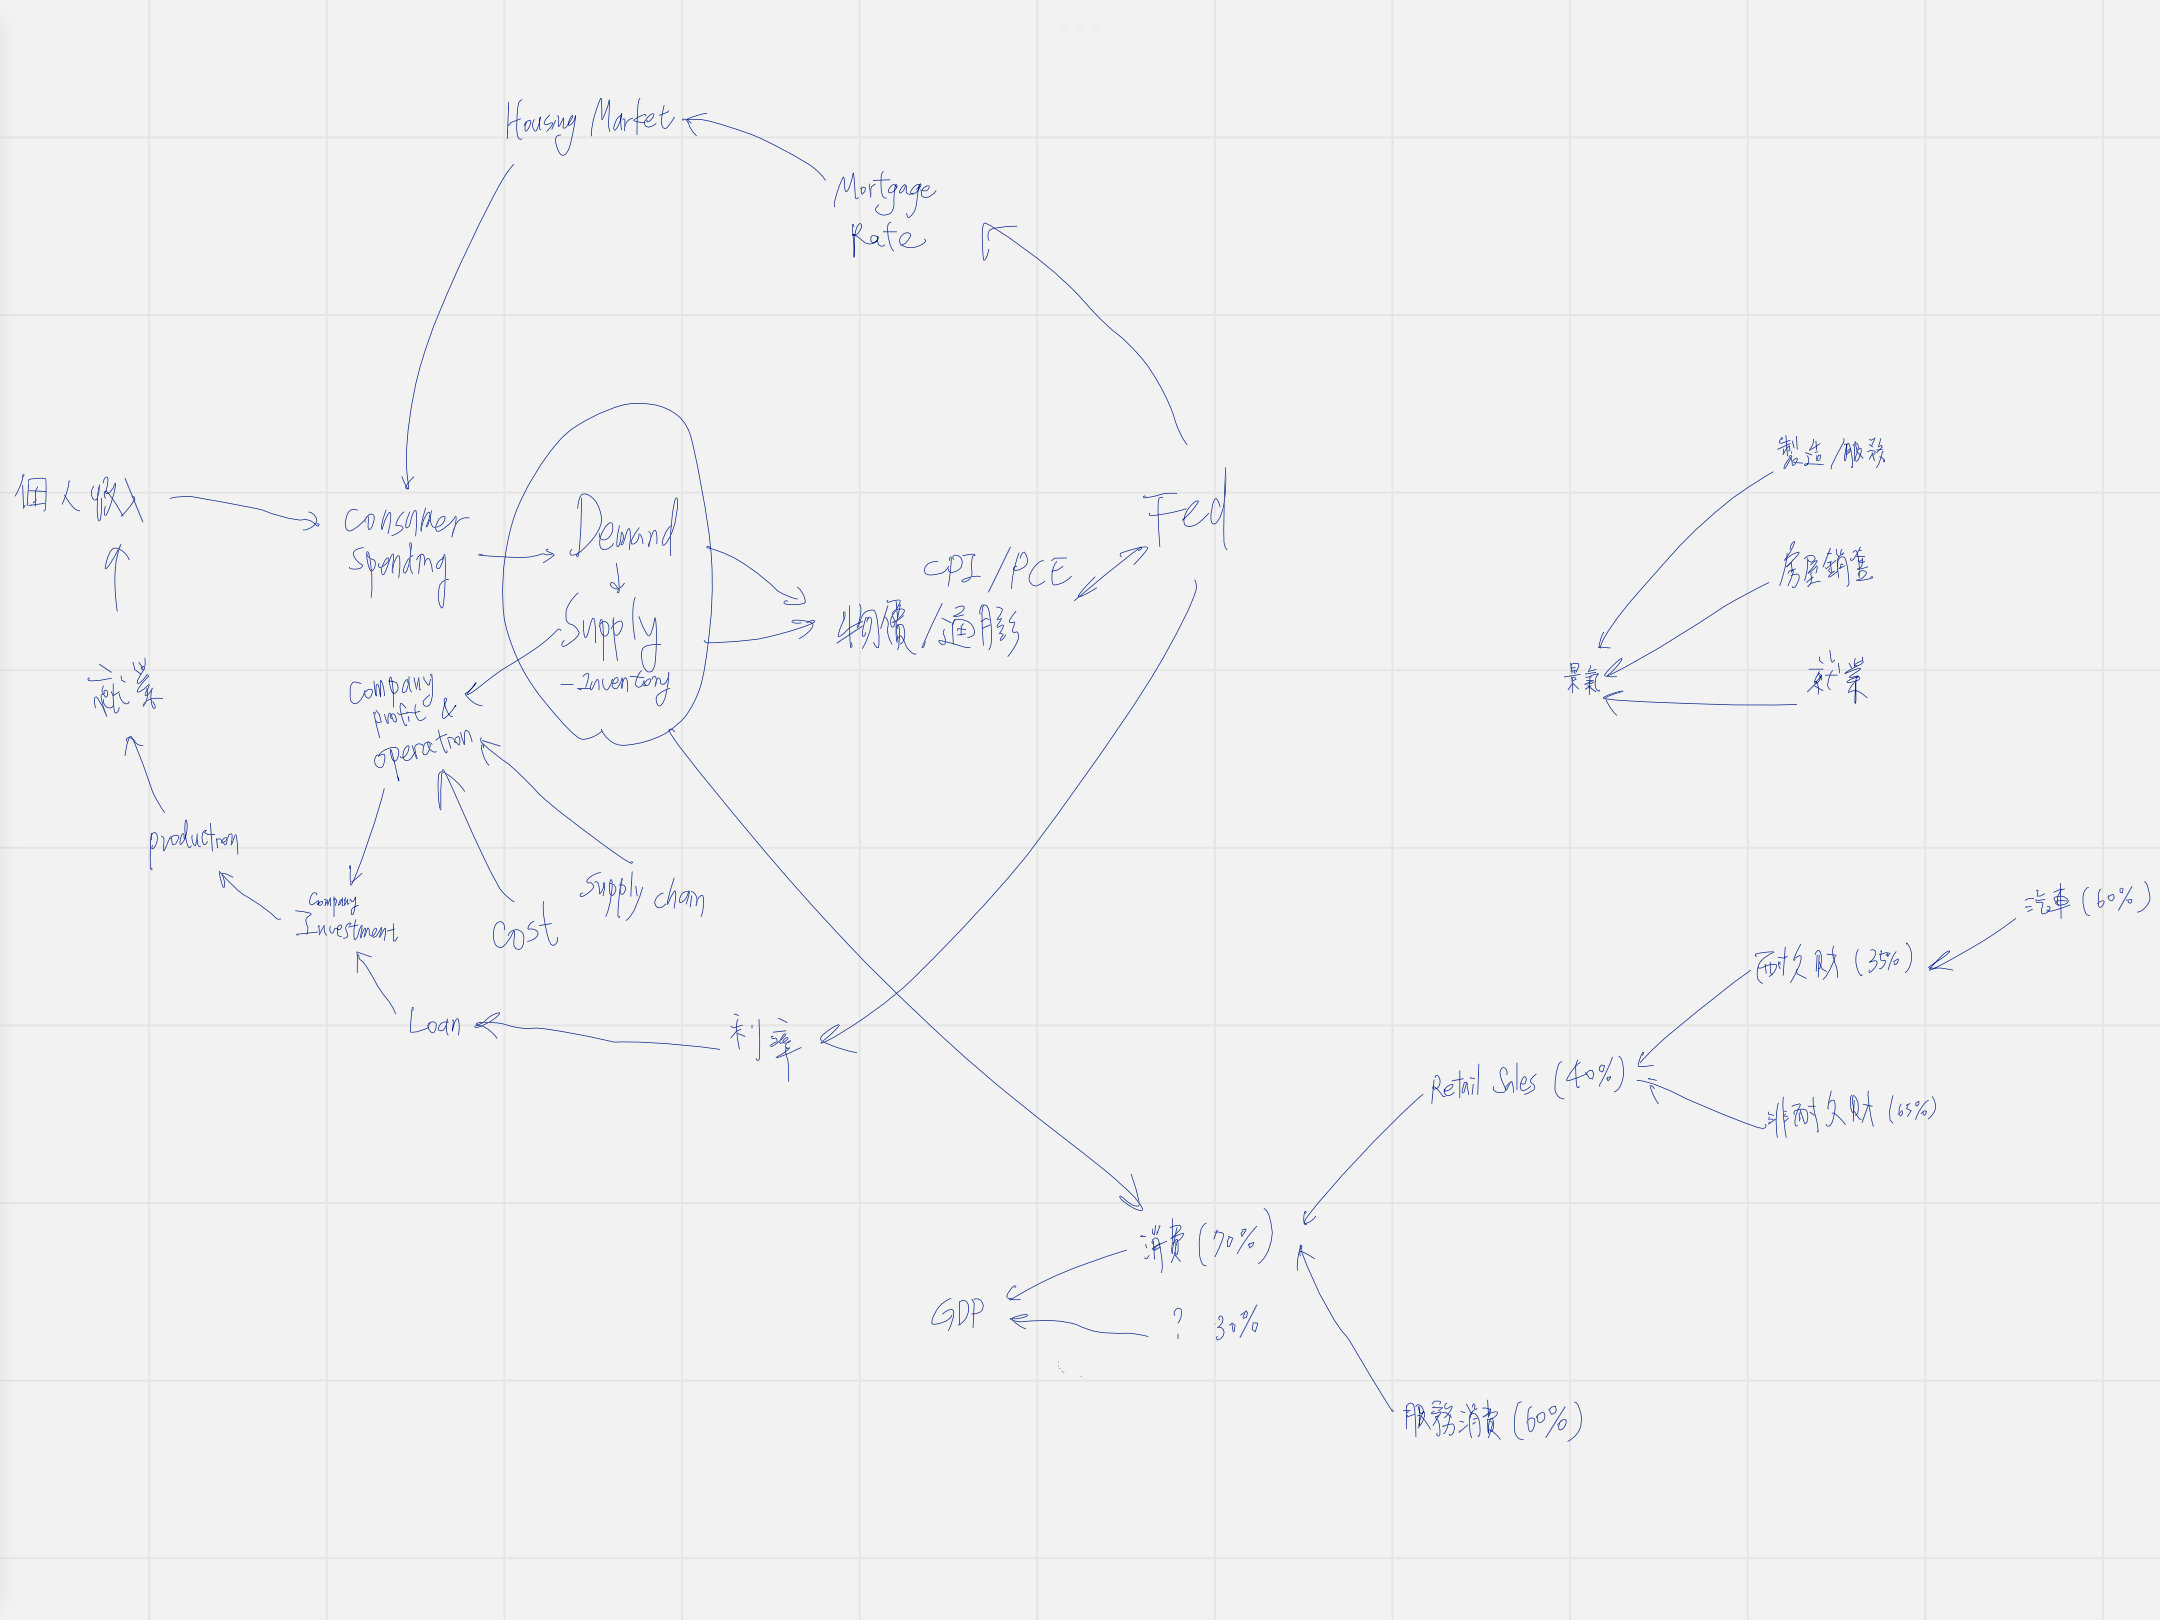 Housing Market
Mortgage
Rate
個人收入
Consumer
Spending
Demand
Supply
-Inventory
CPI/PCE
物價/通膨
Fed
製造/服務
房屋銷售
景氣
就業
就業
Company
profit &
operation
production
Company
Investment
Cost
Supply chain
Loan
利率
汽車 (60%)
耐久財 (35%)
Retail Sales (40%)
非耐久財 (65%)
消費 (70%)
GDP
? 30%
服務消費 (60%)